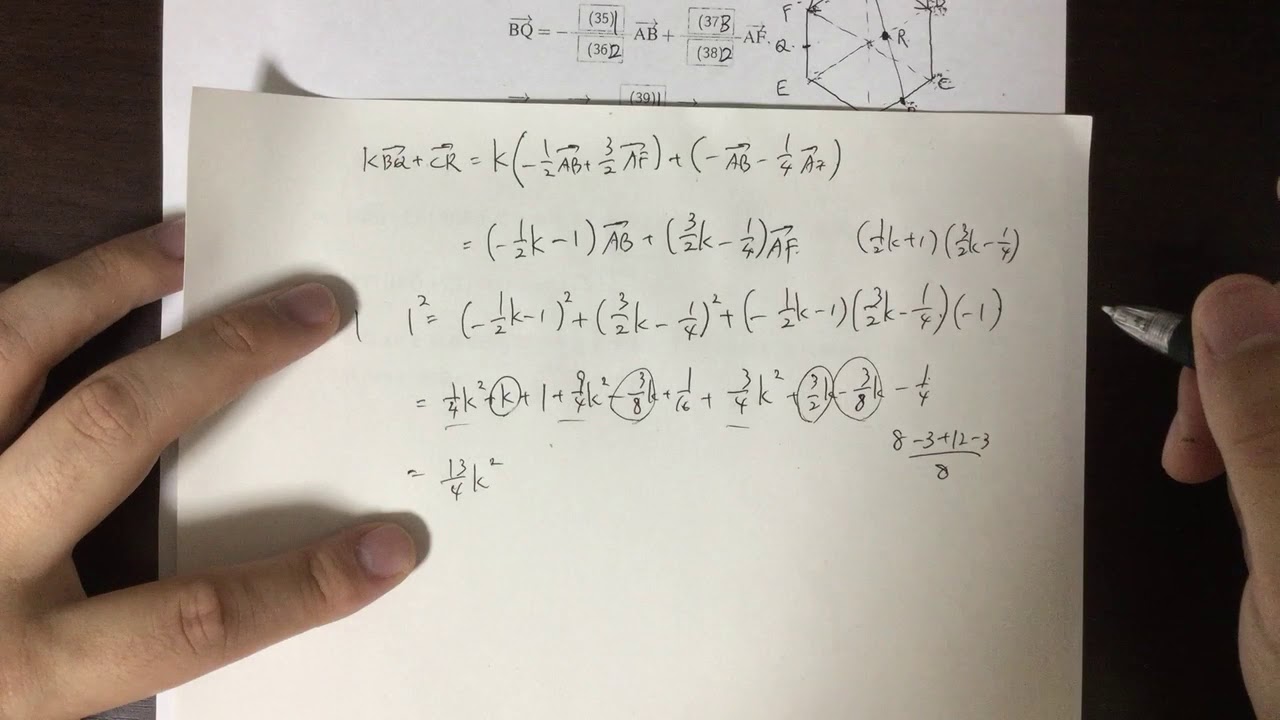 BQ→ = − (35)1/(36)2 AB→ + (37)3/(38)2 AF→.
(39)1
F
Q
R
E
C
kBQ→ + CR→ = k(−1/2 AB→ + 3/2 AF→) + (−AB→ − 1/4 AF→)
= (−1/2k − 1) AB→ + (3/2k − 1/4) AF→. (1/2k + 1)(3/2k − 1/4)
| |² = (−1/2k − 1)² + (3/2k − 1/4)² + (−1/2k − 1)(3/2k − 1/4)(−1)
= 1/4k² + k + 1 + 9/4k² − 3/8k + 1/16 + 3/4k² + 3/2k − 3/8k − 1/4
8 − 3 + 12 − 3/8
= 13/4k²